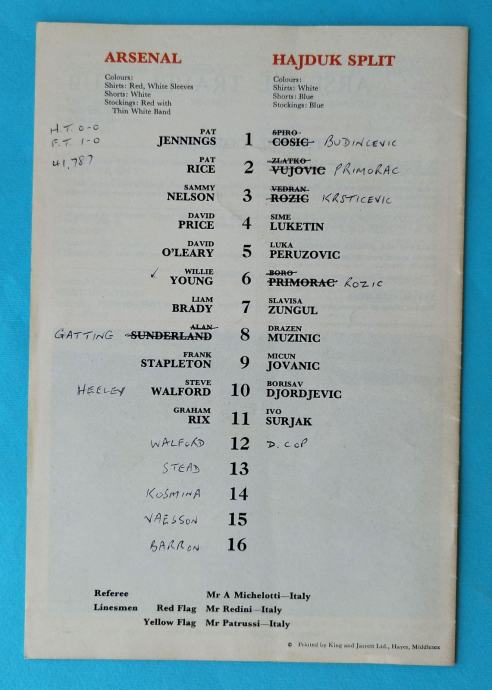 ARSENAL HAJDUK SPLIT
Colours: Colours:
Shirts: Red, White Sleeves Shirts: White
Shorts: White Shorts: Blue
Stockings: Red with Stockings: Blue
Thin White Band
H.T. 0-0
F.T. 1-0
41,787
PAT SPIRO
JENNINGS 1 COSIC BUDINCEVIC
PAT ZLATKO
RICE 2 VUJOVIC PRIMORAC
SAMMY VEDRAN
NELSON 3 ROZIC KRSTICEVIC
DAVID SIME
PRICE 4 LUKETIN
DAVID LUKA
O'LEARY 5 PERUZOVIC
✓ WILLIE BORO
YOUNG 6 PRIMORAC ROZIC
LIAM SLAVISA
BRADY 7 ZUNGUL
ALAN DRAZEN
GATTING SUNDERLAND 8 MUZINIC
FRANK MICUN
STAPLETON 9 JOVANIC
STEVE BORISAV
HEELEY WALFORD 10 DJORDJEVIC
GRAHAM IVO
RIX 11 SURJAK
WALFORD 12 D. COP
STEAD 13
KOSMINA 14
VAESSON 15
BARRON 16
Referee Mr A Michelotti—Italy
Linesmen Red Flag Mr Redini—Italy
Yellow Flag Mr Patrussi—Italy
© Printed by King and Jarrett Ltd., Hayes, Middlesex